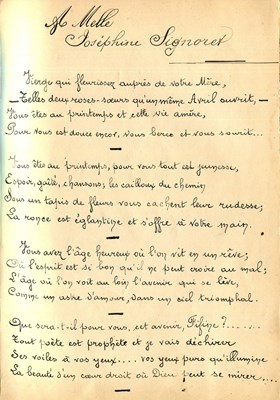 A Melle
Joséphine Signoret
Vierge qui fleurissez auprès de votre Mère,
— Telles deux roses-sœurs qu'un même Avril ouvrit, —
Vous êtes au printemps et cette vie amère,
Pour vous est douce encor, vous berce et vous sourit...
Vous êtes au printemps, pour vous tout est jeunesse,
Espoir, gaîté, chansons; les cailloux du chemin
Sous un tapis de fleurs vous cachent leur rudesse;
La ronce est églantine et s'offre à votre main.
Vous avez l'âge heureux où l'on vit en un rêve;
Où l'esprit est si bon qu'il ne peut croire au mal;
L'âge où l'on voit au loin l'avenir qui se lève,
Comme un astre d'amour, dans un ciel triomphal.
Que sera-t-il pour vous, cet avenir, Fifine?......
Tout poète est prophète et je vais déchirer
Ses voiles à vos yeux.... vos yeux purs qu'illumine
La beauté d'un cœur droit où Dieu peut se mirer....